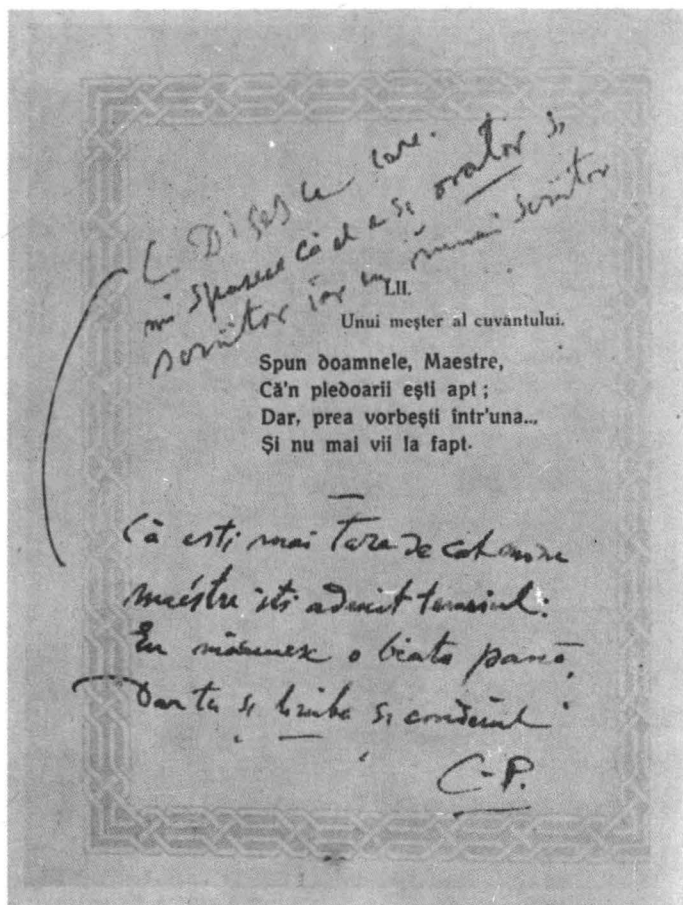 C. Disescu care.
mi spusese că el e și orator și
scriitor iar eu numai scriitor
LII.
Unui meșter al cuvântului.
Spun doamnele, Maestre,
Că'n pledoarii ești apt;
Dar, prea vorbești într'una...
Și nu mai vii la fapt.
Că ești mai tare de cât mine
maestre iți admit
Eu mânuesc o biata pană,
Dar tu și limba și condeiul
C-P.